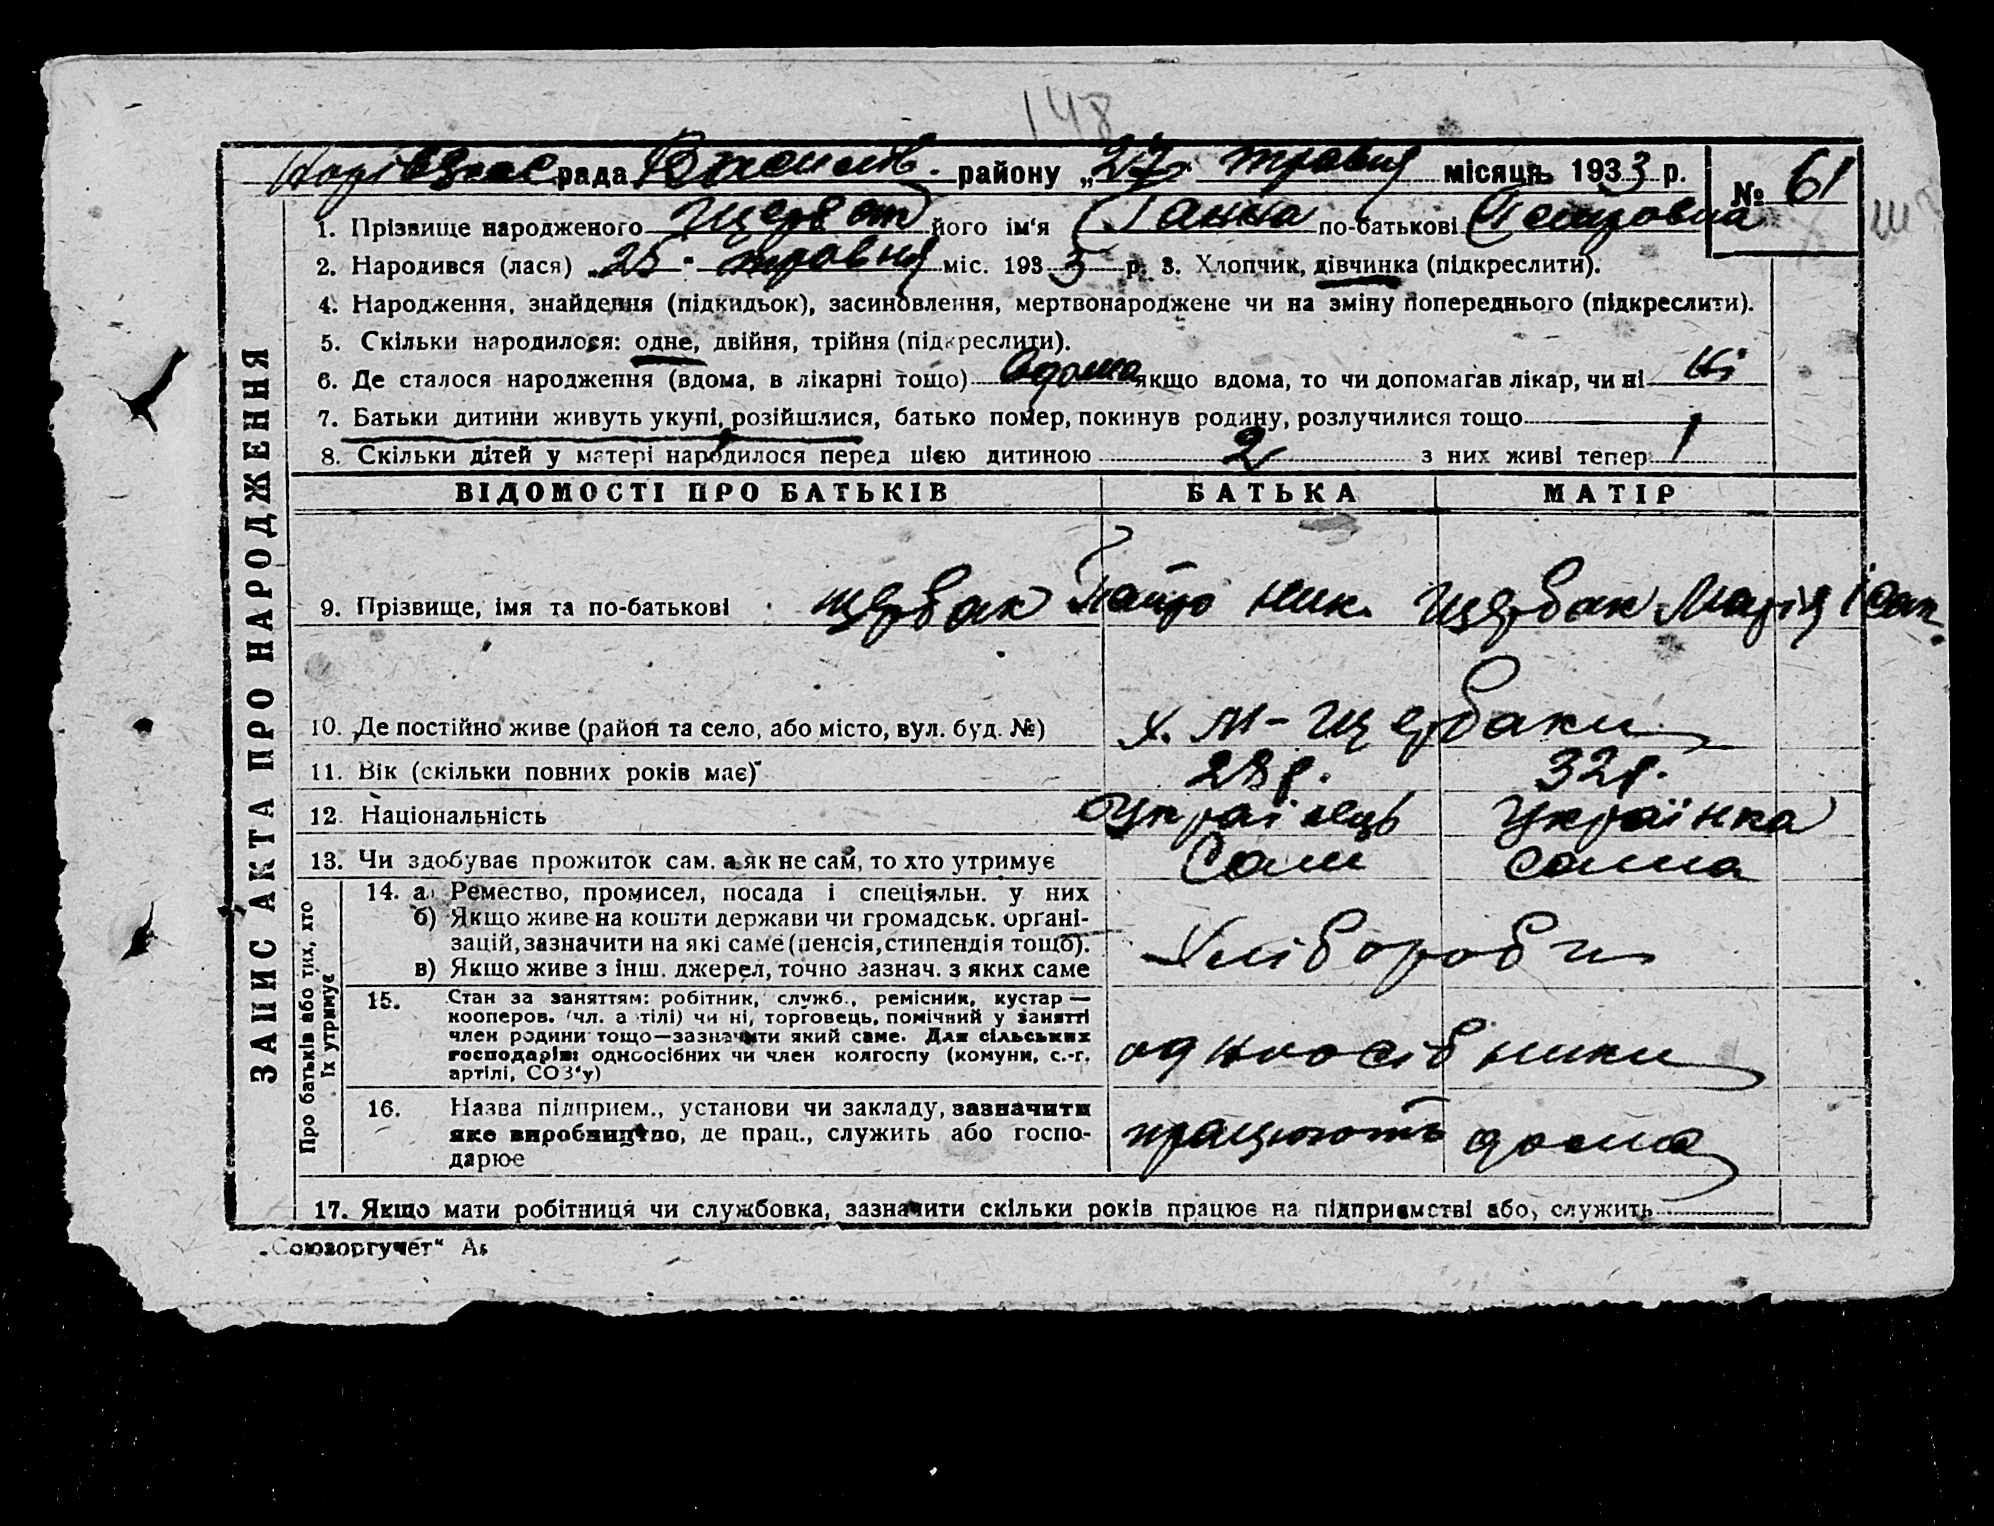 148
рада району „27" травня місяця 1933 р. № 61
1. Прізвище народженого Щербак його ім'я Ганна по-батькові Петровна
2. Народився (лася) „25" травня міс. 1933 р. 3. Хлопчик, дівчинка (підкреслити).
4. Народження, знайдення (підкидьок), засиновлення, мертвонароджене чи на зміну попереднього (підкреслити).
5. Скільки народилося: одне, двійня, трійня (підкреслити).
6. Де сталося народження (вдома, в лікарні тощо) вдома якщо вдома, то чи допомагав лікар, чи ні Ні
7. Батьки дитини живуть укупі, розійшлися, батько помер, покинув родину, розлучилися тощо
8. Скільки дітей у матері народилося перед цією дитиною 2 з них живі тепер 1
ЗАПИС АКТА ПРО НАРОДЖЕННЯ
ВІДОМОСТІ ПРО БАТЬКІВ БАТЬКА МАТІР
9. Прізвище, імя та по-батькові Щербак Ник. Щербак Марія
10. Де постійно живе (район та село, або місто, вул. буд. №) х. М-Щербаки
11. Вік (скільки повних років має) 28 р. 32 р.
12. Національність Українець Українка
13. Чи здобуває прожиток сам, а як не сам, то хто утримує Сам сама
Про батьків або тих, хто їх утримує
14. а) Ремество, промисел, посада і спеціяльн. у них
б) Якщо живе на кошти держави чи громадськ. органі-
зацій, зазначити на які саме (пенсія, стипендія тощо).
в) Якщо живе з інш. джерел, точно зазнач. з яких саме
Хлібороби
15. Стан за заняттям: робітник, служб., ремісник, кустар —
кооперов. (чл. артілі) чи ні, торговець, помічний у занятті
член родини тощо—зазначити який саме. Для сільських
господарів: одноосібних чи член колгоспу (комуни, с.-г.
артілі, СОЗ'у)
одноосібники
16. Назва підприєм., установи чи закладу, зазначити
яке виробництво, де прац., служить або госпо-
дарює
працюють дома
17. Якщо мати робітниця чи службовка, зазначити скільки років працює на підприємстві або, служить
„Союзоргучет"